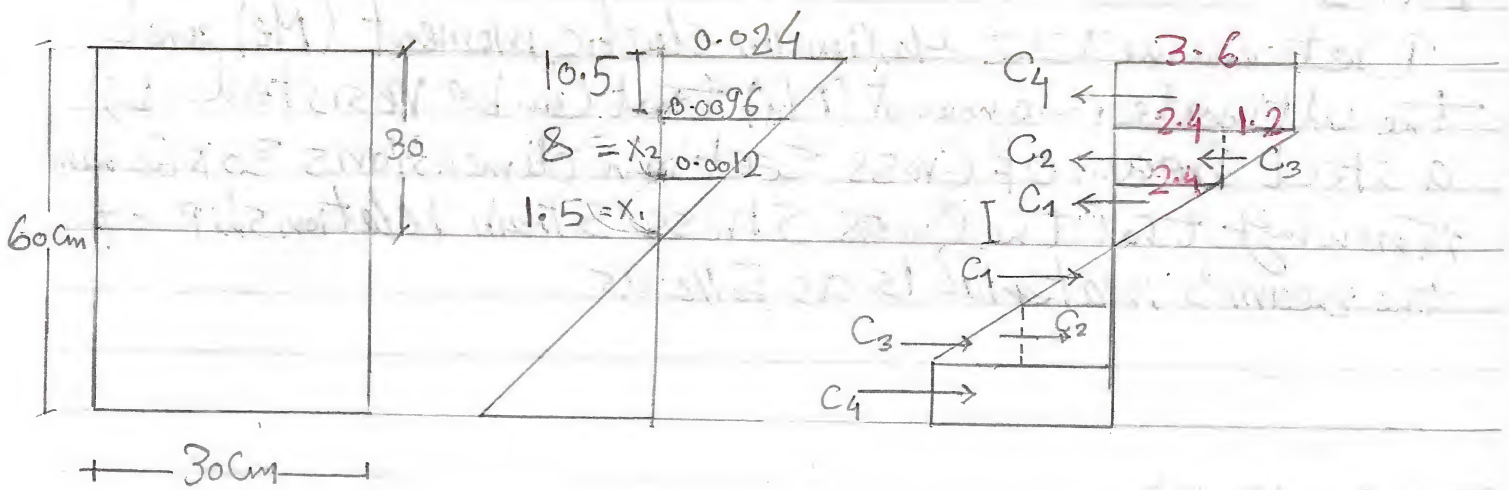 60Cm
30Cm
30
0.024
10.5
0.0096
8 = x₂
0.0012
1.5 = x₁
3.6
C₄
2.4 1.2
C₂
C₃
2.4
C₁
C₁
C₃
C₂
C₄